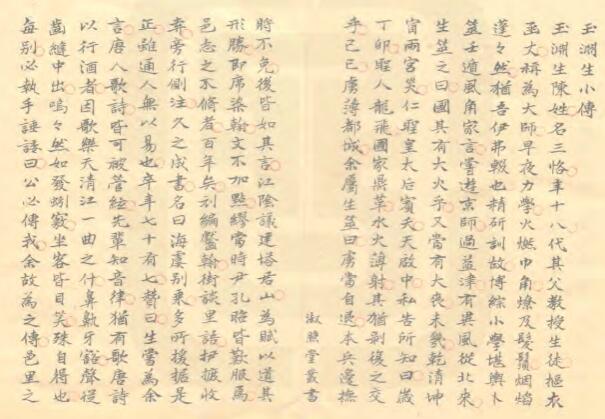 玉淵生小傳
玉淵生陳姓名三恪年十八代其父教授生徒樞衣
函丈稱為大師早夜力學火燃巾角燎及髮鬢烟焰
蓬々然猶吾伊弗輟也精研訓故博綜小學堪輿卜
筮壬遁風角家言嘗遊京師過益津有異風從北來
生筮之曰國其有大火乎又當有大喪未幾乾清坤
寧兩宮災仁聖皇太后賓天天啟中私告所知曰歲
丁卯聖人龍飛國家鼎革水火薄射其猶剝復之交
乎己巳虜薄都城余屬生筮曰虜當自退本兵邊撫
淑照堂叢書
時不免後皆如其言江陰議建塔君山為賦以道其
形勝即席染翰文不加點繆當時尹孔昭皆歎服為
邑志之不脩者百年矣刓編蠹翰街談里語捃摭收
弆旁行側注久之成書名曰海虞別乘多所援據是
正雖通人無以易也卒年七十有七贊曰生嘗為余
言唐人歌詩皆可被管絃先輩知音律猶有歌唐詩
以行酒者因歌樂天清江一曲之什鼻鼽牙豁聲從
齒縫中出嗚々然如發蚓竅坐客皆目笑殊自得也
每別必執手諈諉曰公必傳我余故為之傳邑里之